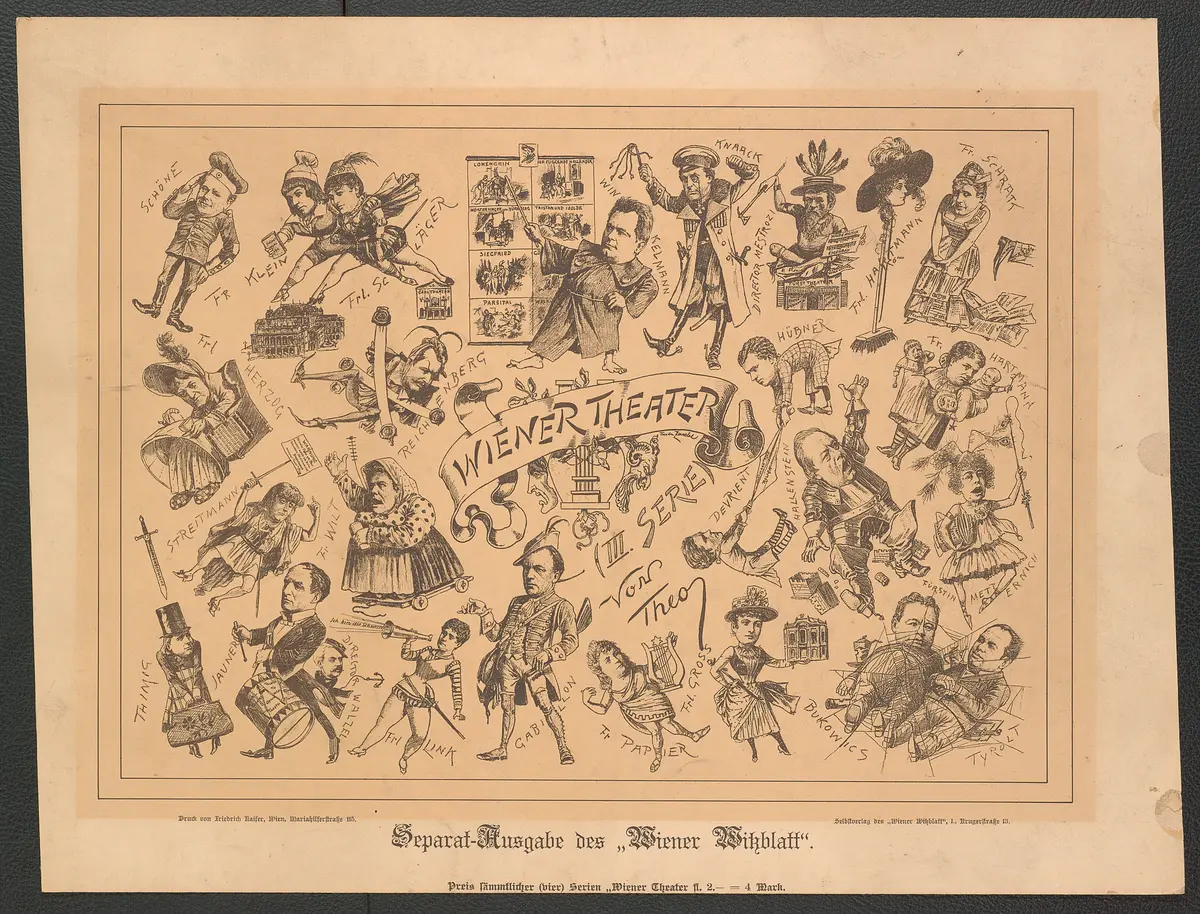 SCHÖNE
Fr KLEIN
Frl. SCHLÄGER
LOHENGRIN
DER FLIEGENDE HOLLÄNDER
TRISTAN UND ISOLDE
SIEGFRIED
PARSIFAL
WINKELMANN
KNAACK
DIRECTOR NESTROZI
Frl. HAUSMANN
Fr. SCHRATT
Frl HERZOG
REICHENBERG
HÜBNER
Fr. HARTMANN
WIENER THEATER
(III. SERIE)
Von
Theo
STREITMANN
Fr WILT
DEVRIENT
HALLENSTEIN
FÜRSTIN METTERNICH
THIMIG
JAUNER
REGISS. WALZEL
Frl LINK
GABILLON
Fr PAPIER
Frl GROSS
BUKOWICS
TYROLT
Druck von Friedrich Kaiser, Wien, Mariahilferstraße 115.
Selbstverlag des „Wiener Witzblatt“, I., Krugerstraße 13.
Separat-Ausgabe des „Wiener Witzblatt“.
Preis sämmtlicher (vier) Serien „Wiener Theater fl. 2.— = 4 Mark.